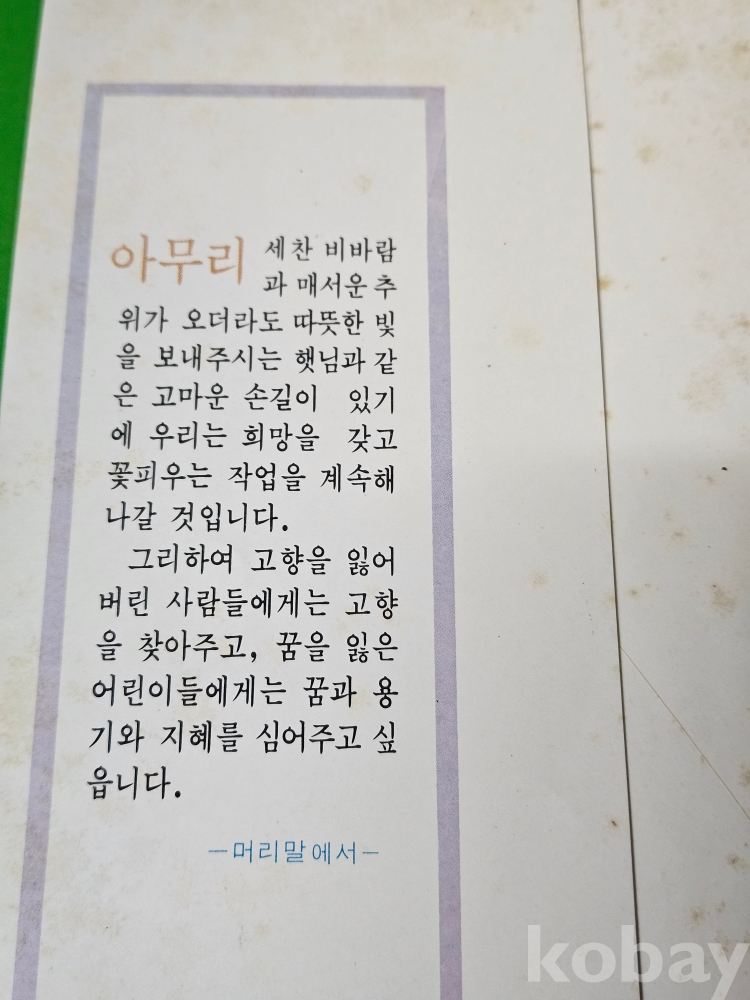 아무리 세찬 비바람
과 매서운 추
위가 오더라도 따뜻한 빛
을 보내주시는 햇님과 같
은 고마운 손길이 있기
에 우리는 희망을 갖고
꽃피우는 작업을 계속해
나갈 것입니다.
그리하여 고향을 잃어
버린 사람들에게는 고향
을 찾아주고, 꿈을 잃은
어린이들에게는 꿈과 용
기와 지혜를 심어주고 싶
읍니다.
—머리말에서—
kobay